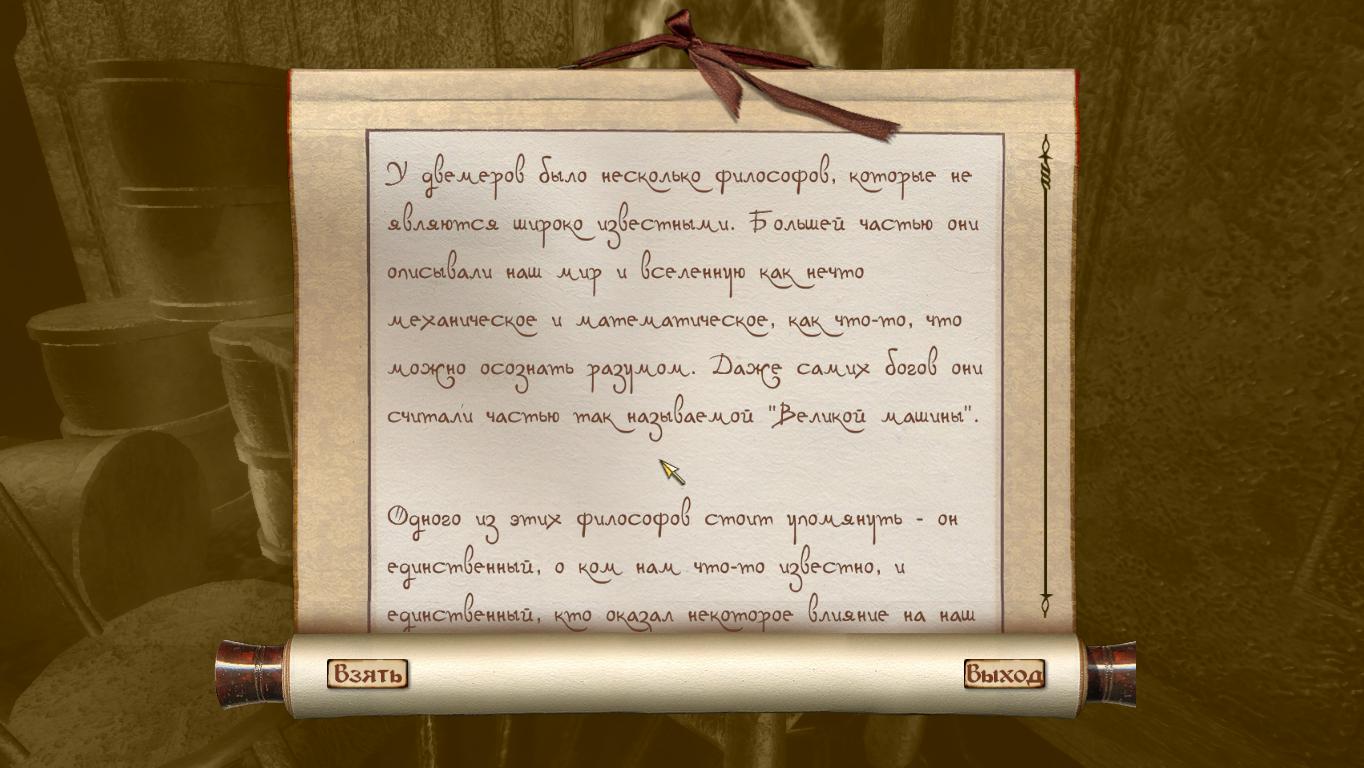 У двемеров было несколько философов, которые не
являются широко известными. Большей частью они
описывали наш мир и вселенную как нечто
механическое и математическое, как что-то, что
можно осознать разумом. Даже самих богов они
считали частью так называемой "Великой машины".
Одного из этих философов стоит упомянуть - он
единственный, о ком нам что-то известно, и
единственный, кто оказал некоторое влияние на наш
Взять
Выход